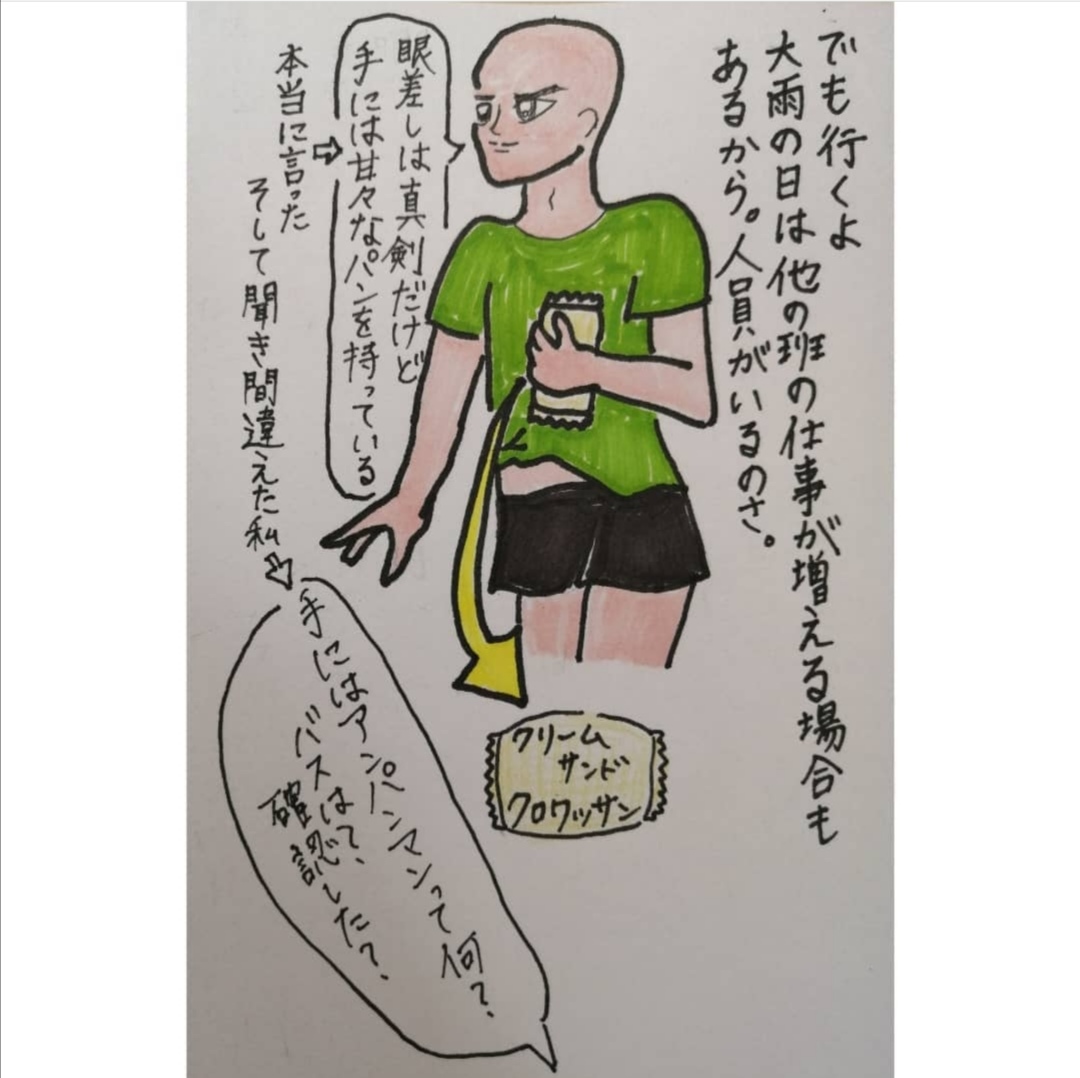 でも行くよ
大雨の日は他の班の仕事が増える場合も
あるから。人員がいるのさ。
眼差しは真剣だけど
手には甘々なパンを持っている
本当に言った
そして聞き間違えた私
手にはアンパンマンって何?、
バスはて、
確認した?、
クリーム
サンド
クロワッサン